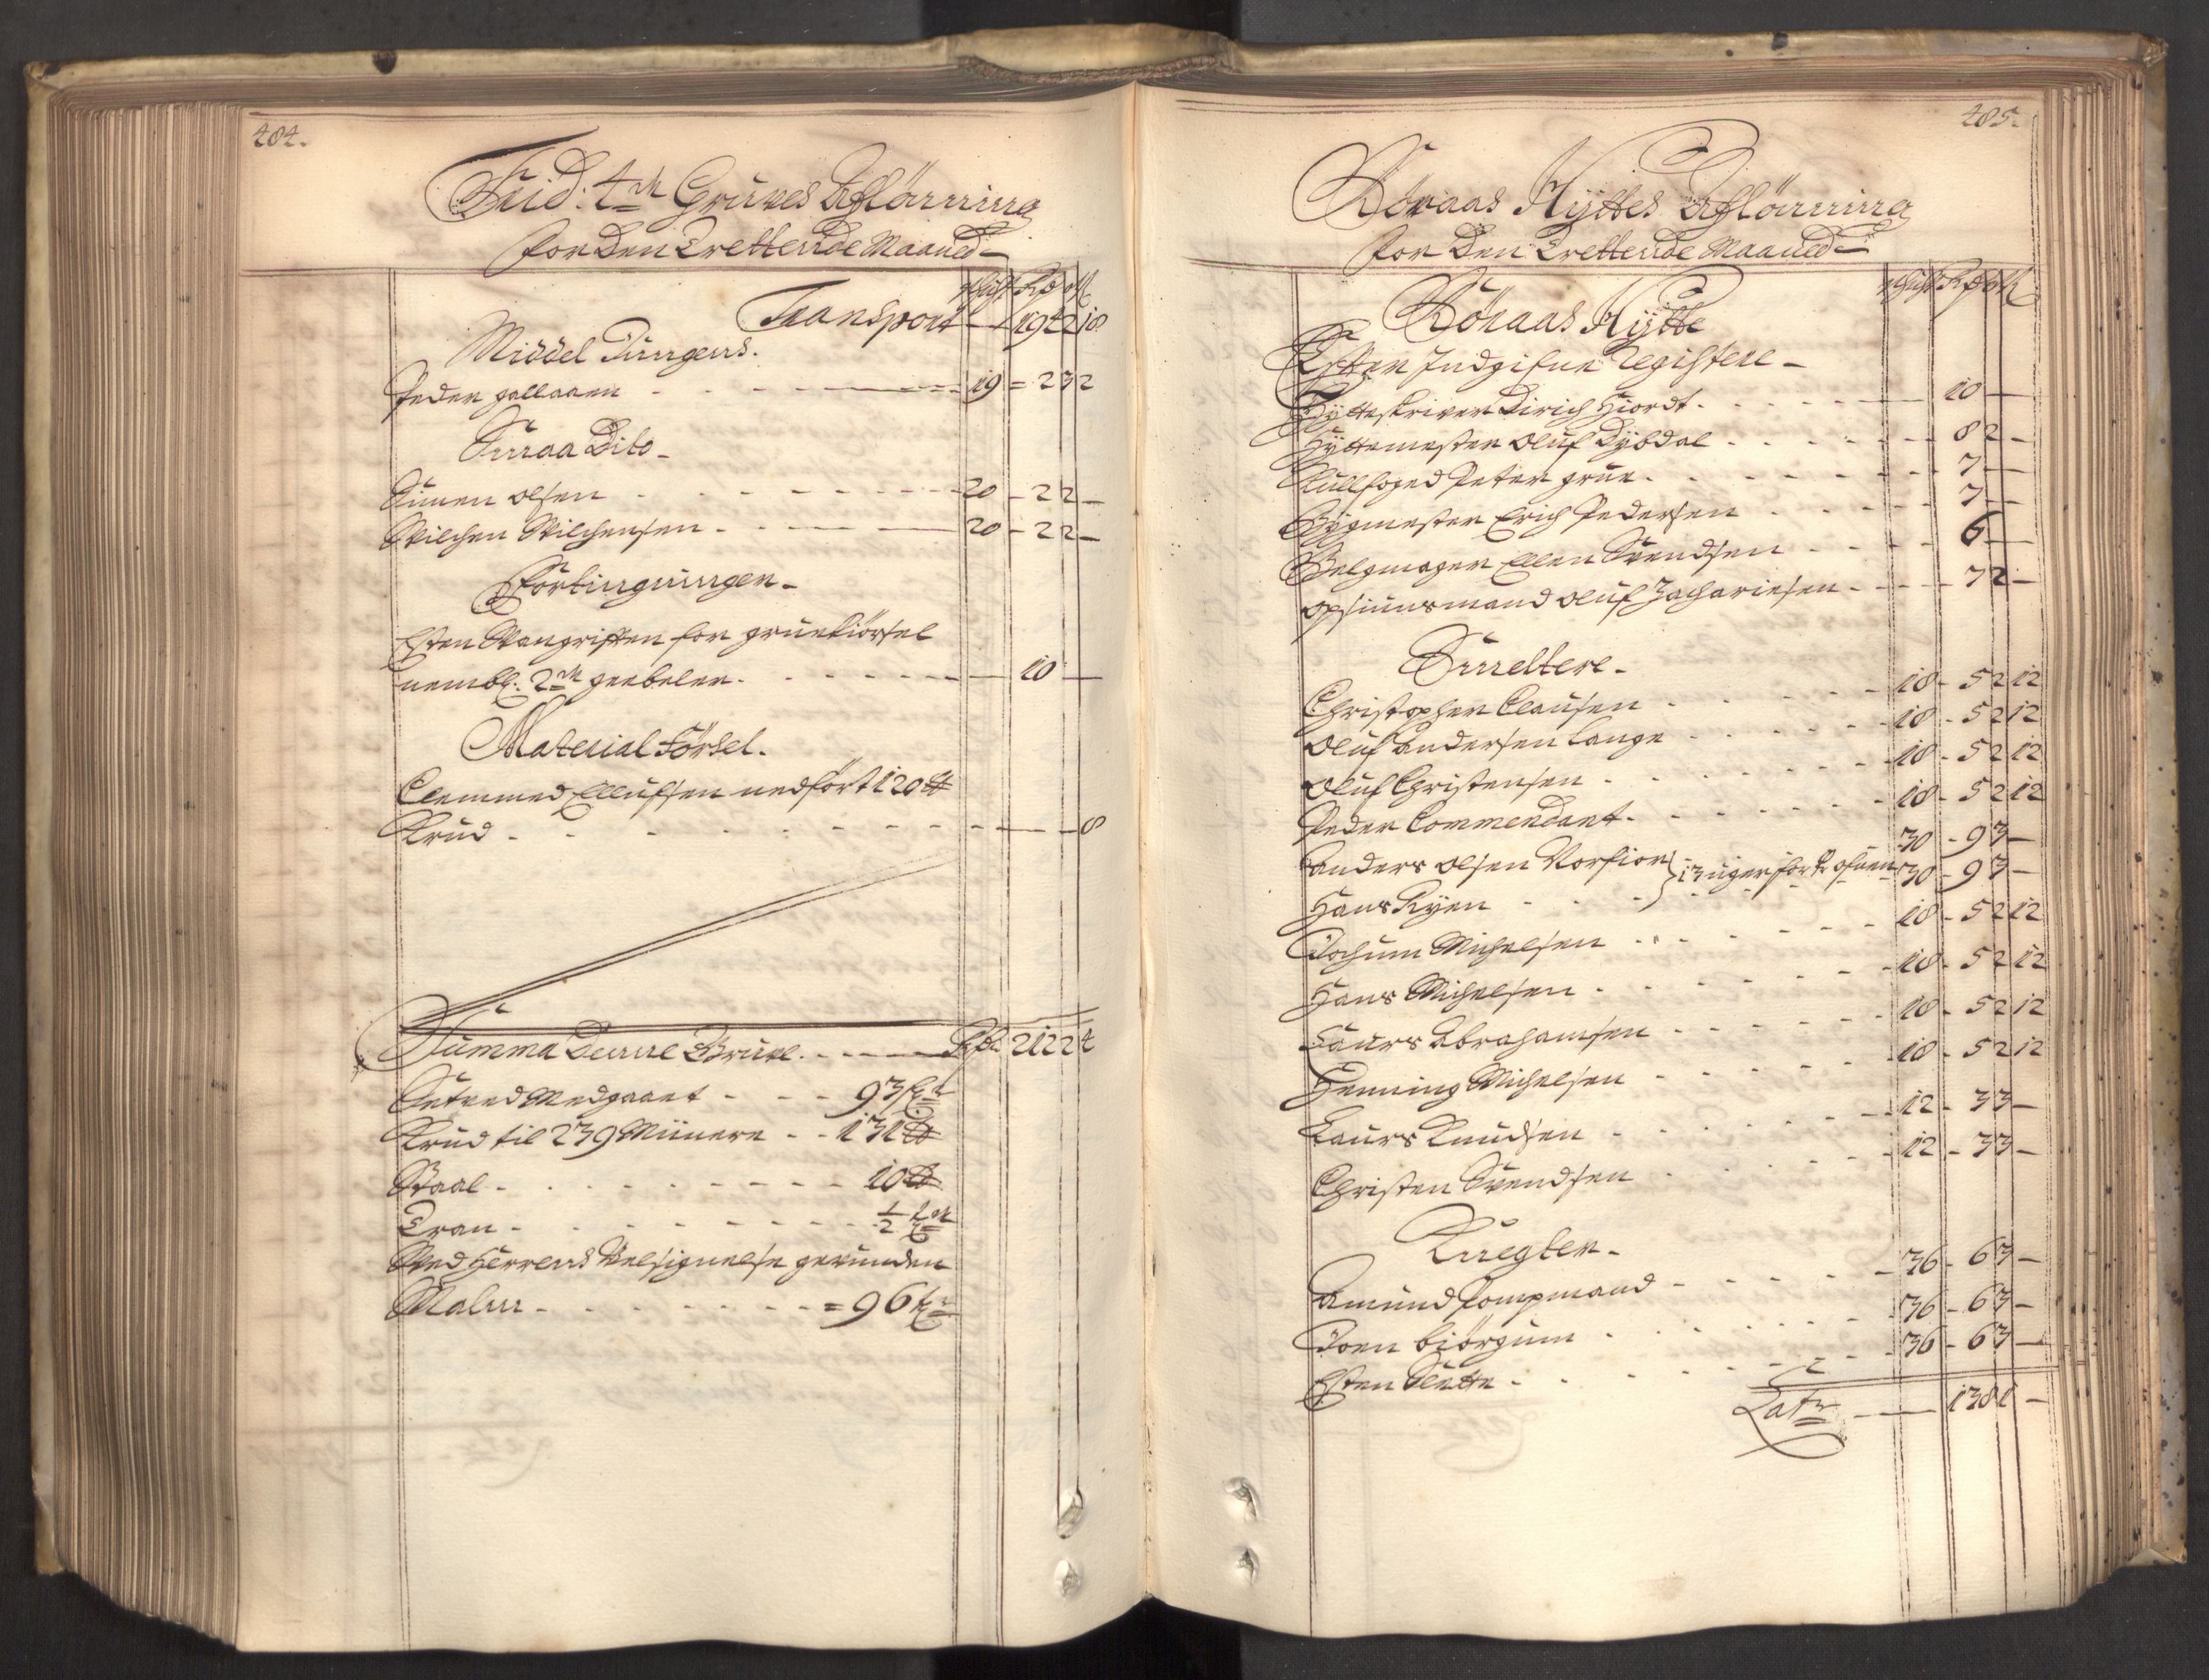 484.
Frid: 4de Gruves Afflönning
for Den Trettende Maaned
Schicht Rd Ort ß
Transport — 194 2 18
Middel Jungens.
Peder gallaaen - - - 19 - 2 3 2
Smaa Dito
Simen olsen - - - 20 - 2 2 -
Wilchen Wilchensen - - - 20 - 2 2 -
Fortingninger
Esten Wangriften for gruekiörsel
nembl: 2de geebeler - - - 10 -
Material Förssel.
Clemmed Ellufsen nedfört 120 ℔
Krud - - - 8
Summa Denne Gruve - - - Rdr 212 2 4
Setved Medgaaet - - - 93 f:r
Krud til 239 Miinere - - 131 ℔
Staal - - - 10 ℔
Tran - - - 1/2 td
Ved Herrens Velsignelse gevunden
Malm - - - 96 tr
485.
Röraas Hyttes Afflönning
for Den Trettende Maaned
Schicht Rd Ort ß
Röraas Hytte
Efter Indgifne Registere
Hytteskriver Dirich Hiordt - - - 10 -
Hyttemester Oluf Dybdal - - - 8 2 -
Kullfoged Peter grue - - - 7 -
Bygmester Erich Pedersen - - - 7 -
Belgmager Ellen Svendsen - - - 6 -
Opsiunsmand Oluf Zachariesen - - - 7 2 -
Smeltere
Christopher Clausen - - - 18 - 5 2 12
Oluf andersen Lange - - - 18 - 5 2 12
Oluf Christensen - - - 18 - 5 2 12
Peder Commendant - - - 18 - 5 2 12
anders olsen Norfior } 13 uger for Pr ofnen 30 - 9 3 -
Hans Ryen - - - 30 - 9 3 -
Jochum Michelsen - - - 18 - 5 2 12
Hans Michelsen - - - 18 - 5 2 12
Laurs Abrahamsen - - - 18 - 5 2 12
Henning Michelsen - - - 18 - 5 2 12
Laurs Knudsen - - - 12 - 3 3 -
Christen Svendsen - - - 12 - 3 3 -
Knegter
Amund Compmand - - - 36 - 6 3 -
Joen biörgum - - - 36 - 6 3 -
Esten Slette - - - 36 - 6 3 -
Latr — 138 1 -